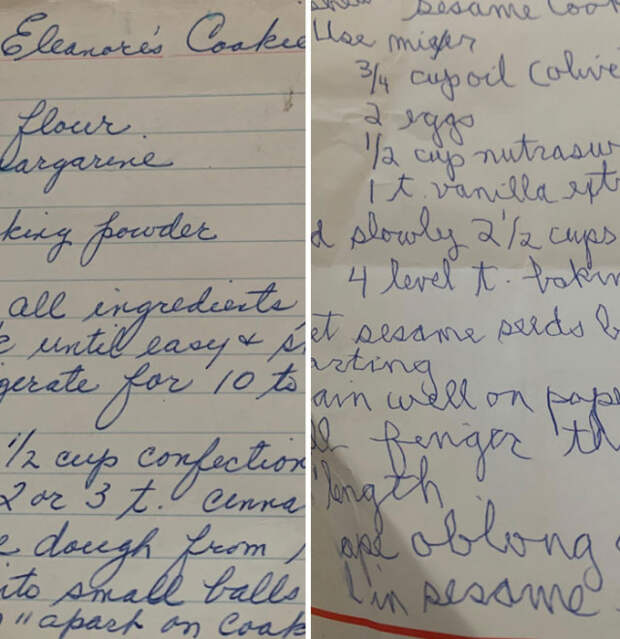 Eleanore's Cookie
flour
argarine
king powder
all ingredients
until easy &
gerate for 10 to
1/2 cup confection
2 or 3 t. cinna
e dough from
ito small balls
" apart on cook
sesame Coo
Use mixer
3/4 cup oil (olive
2 eggs
1/2 cup nutrasw
1 t. vanilla ext
d slowly 2 1/2 cups
4 level t. bakin
et sesame seeds b
arting
ain well on pape
ll finger th
length
ape oblong
l in sesame